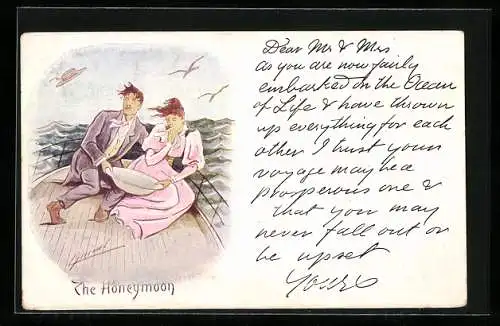 Dear Mr & Mrs
as you are now fairly
embarked on the Ocean
of Life & have thrown
up everything for each
other I trust your
voyage may be a
prosperous one &
that you may
never fall out or
be upset
Yours
The Honeymoon